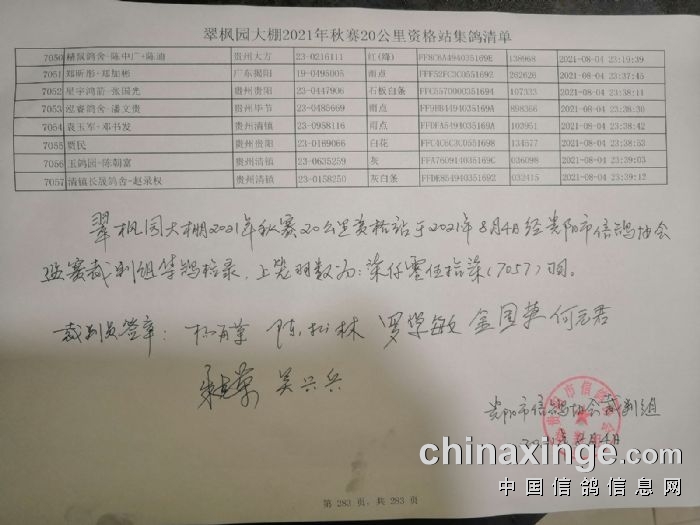 翠枫园大棚2021年秋赛20公里资格站集鸽清单
7050 陈中广+陈迪 贵州大方 23-0216111 红(绛) 138968 2021-08-04 23:19:39
7051 郑昕彤-郑加彬 广东揭阳 19-0495005 雨点 FFF52FC3C0551692 262626 2021-08-04 23:37:45
7052 星宇鸿箭-张国光 贵州贵阳 23-0447906 石板白条 107333 2021-08-04 23:38:11
7053 泓睿鸽舍-潘文贵 贵州毕节 23-0485669 雨点 898366 2021-08-04 23:38:30
7054 袁玉军-邓书发 贵州清镇 23-0958116 雨点 FFDFA5494035169A 103951 2021-08-04 23:38:42
7055 贾民 贵州贵阳 23-0169066 白花 FFC4C6C3C0551698 134577 2021-08-04 23:38:53
7056 玉鸽园-陈朝富 贵州清镇 23-0635259 灰 FFA760914035169C 036098 2021-08-04 23:39:03
7057 清镇长晟鸽舍-赵录权 贵州清镇 23-0158250 灰白条 FFDE854940351692 032415 2021-08-04 23:39:12
翠枫园大棚2021年秋赛20公里资格站于2021年8月4日经贵阳市信鸽协会
监赛裁判组集鸽检录,上笼羽数为:柒仟零伍拾柒(7057)羽。
裁判员签章: 陈松林 罗学敏 金国英 何元君
吴兴兵
贵阳市信鸽协会裁判组
2021年8月4日
chinaxinge.com
中国信鸽信息网
第 283 页,共 283 页